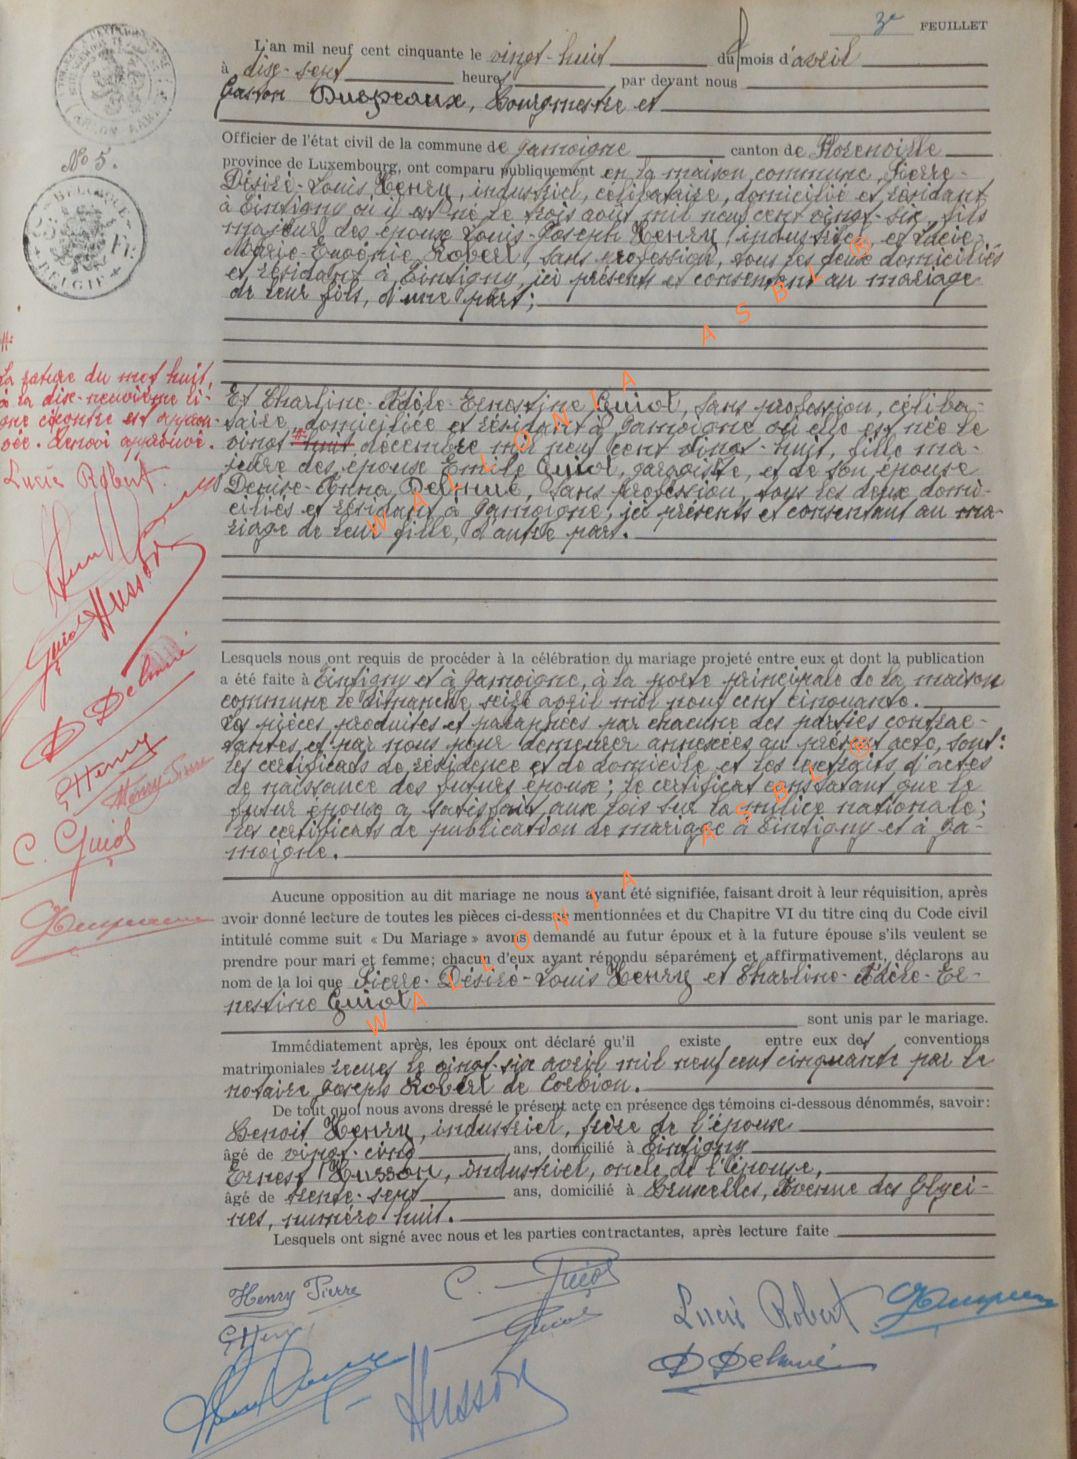 3e FEUILLET
L'an mil neuf cent cinquante le vingt-huit du mois d'avril
à dix-sept heure par devant nous
Gaston Duspeaux, Bourgmestre et
Officier de l'état civil de la commune de Jamoigne canton de Florenville
province de Luxembourg, ont comparu publiquement en la maison commune, Pierre-
Désiré-Louis Henry, industriel, célibataire, domicilié et résidant
à Tintigny où il est né le trois août mil neuf cent vingt-six, fils
majeur des époux Louis-Joseph Henry, industriel et Lucie-
Marie- Robert, sans profession, tous les deux domiciliés
et résidant à Tintigny, ici présents et consentant au mariage
de leur fils, d'une part;
N° 5.
BELGIQUE
BELGIË
#:
La rature du mot huit,
à la dix-neuvième li-
gne ci-contre est approu-
vée. Renvoi approuvé.
Lucie Robert
Husson
Guiot
D Delmué
Henry
Henry Pierre
C. Guiot
Et Charline-Adèle-Ernestine Guiot, sans profession, céliba-
taire, domiciliée et résidant à Jamoigne où elle est née le
vingt # huit décembre mil neuf cent vingt-huit, fille ma-
jeure des époux Emile Guiot, garagiste, et de son épouse
Denise-Anna Delmué, sans profession, tous les deux domi-
ciliés et résidant à Jamoigne, ici présents et consentant au ma-
riage de leur fille, d'autre part.
Lesquels nous ont requis de procéder à la célébration du mariage projeté entre eux et dont la publication
a été faite à Tintigny et à Jamoigne, à la porte principale de la maison
commune le dimanche, seize avril mil neuf cent cinquante.
Les pièces produites et paraphées par chacune des parties contrac-
tantes et par nous pour demeurer annexées au présent acte, sont:
les certificats de résidence et de domicile et les extraits d'actes
de naissance des futurs époux; le certificat constatant que le
futur époux a satisfait aux lois sur la milice nationale;
les certificats de publication de mariage à Tintigny et à Ja-
moigne.
Aucune opposition au dit mariage ne nous ayant été signifiée, faisant droit à leur réquisition, après
avoir donné lecture de toutes les pièces ci-dessus mentionnées et du Chapitre VI du titre cinq du Code civil
intitulé comme suit « Du Mariage » avons demandé au futur époux et à la future épouse s'ils veulent se
prendre pour mari et femme; chacun d'eux ayant répondu séparément et affirmativement, déclarons au
nom de la loi que Pierre-Désiré-Louis Henry et Charline-Adèle-Er-
nestine Guiot
sont unis par le mariage.
Immédiatement après, les époux ont déclaré qu'il existe entre eux des conventions
matrimoniales reçues le vingt-six avril mil neuf cent cinquante par le
notaire Joseph Robert de Corbion.
De tout quoi nous avons dressé le présent acte en présence des témoins ci-dessous dénommés, savoir:
Benoit Henry, industriel, frère de l'époux
âgé de vingt-cinq ans, domicilié à Tintigny
Ernest Husson, industriel, oncle de l'épouse,
âgé de trente-sept ans, domicilié à Bruxelles, Avenue des Glyci-
nes, numéro huit.
Lesquels ont signé avec nous et les parties contractantes, après lecture faite
Henry Pierre
C. Guiot
Lucie Robert
Henry
Guiot
D Delmué
Husson
WALLONIA ASBL ®
WALLONIA ASBL ®